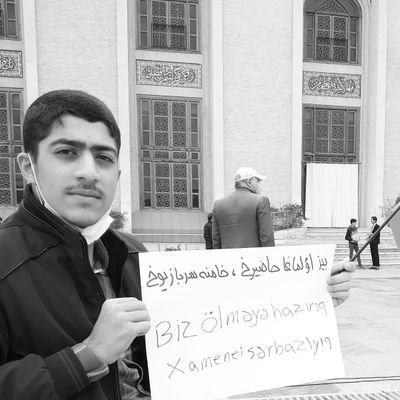 بیز اؤلماغا حاضیرخ ، خامنه سربازیوخ
Biz ölməyə hazırıq
Xamenei sərbazlyıq